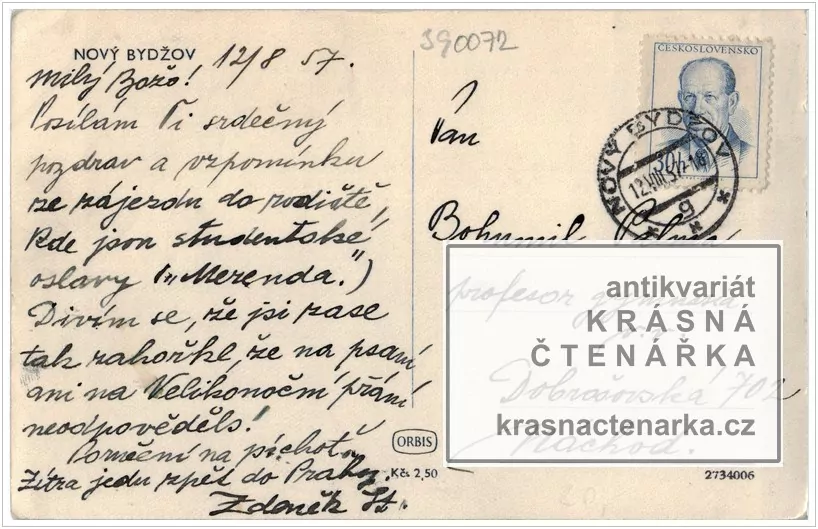 NOVÝ BYDŽOV 12/8 57.
Milý Božo!
Posílám Ti srdečný
pozdrav a vzpomínku
ze zájezdu do rodiště,
kde jsou studentské
oslavy („Merenda.")
Divím se, že jsi zase
tak zahořkl, že na psaní
ani na Velikonoční přání
neodpověděls!
na píchot.
Zítra jedu zpět do Prahy.
Zdeněk St.
ORBIS
Kčs 2,50
390072
ČESKOSLOVENSKO
30h
NOVÝ BYDŽOV
12.VIII.57-18
g
Pan
Bohumil
profesor gymnasia
Dobrošovská 702
Náchod.
antikvariát
KRÁSNÁ
ČTENÁŘKA
krasnactenarka.cz
2734006